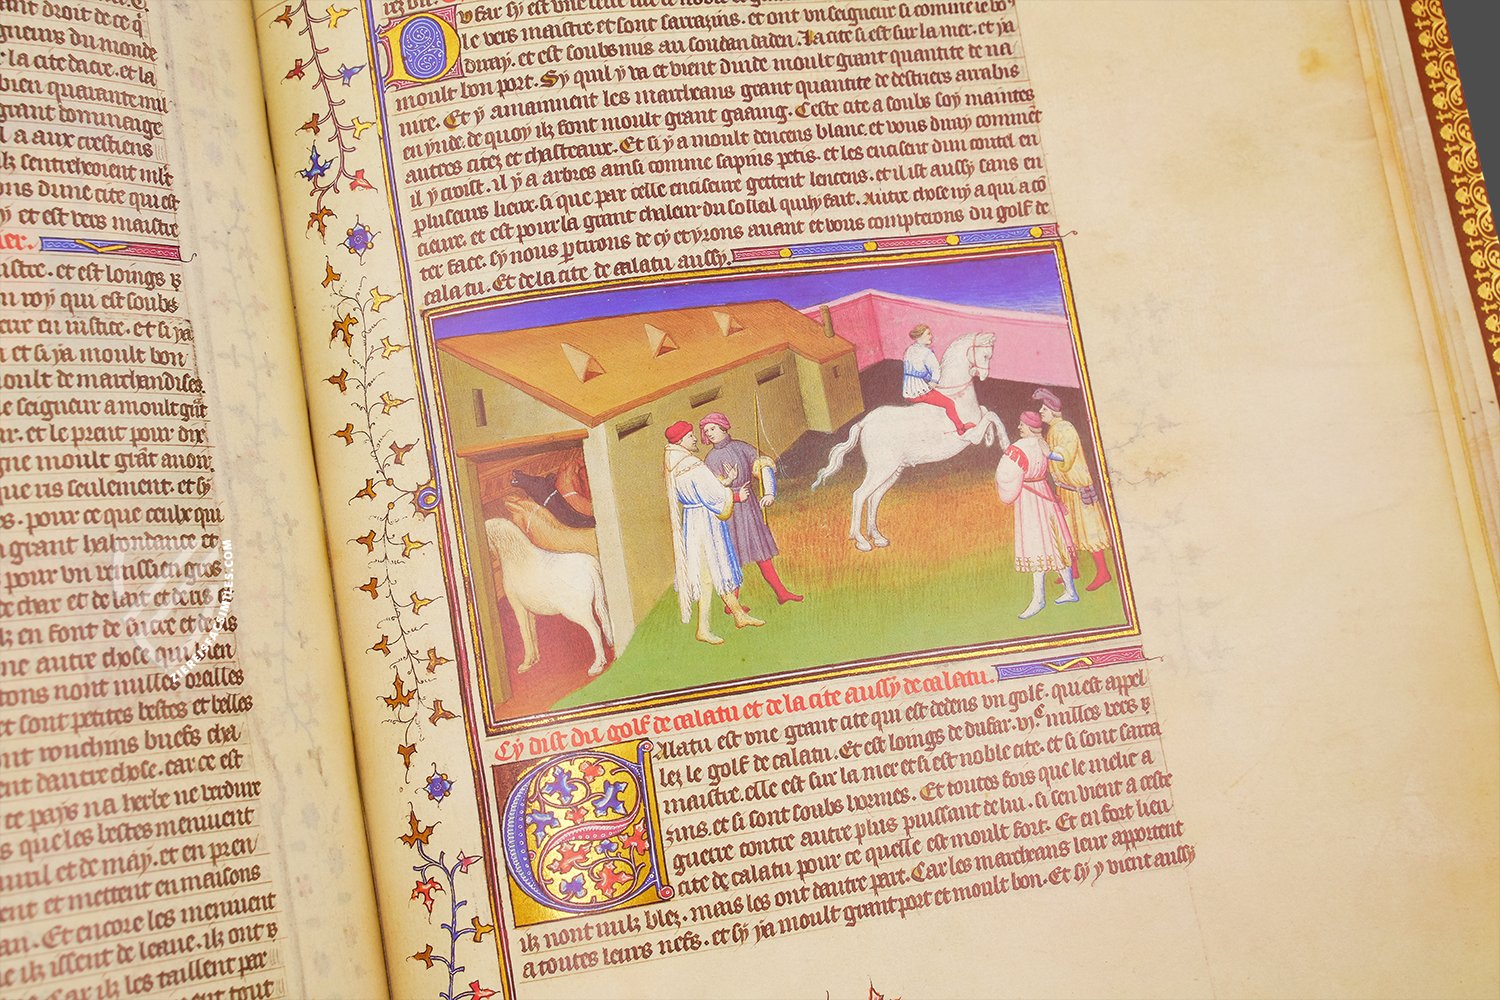 nt droit de ce q̃
gneurs du monde
r la cite dacre. et la
bien quarante mil
grant dommage
l a aux crestiens
ons dune cite qui est
y et est vers maistre
ler.
istre. et est loings
u roy qui est soubz
eur en iustice. et si ya
n et si ya moult bon
oult de marchandises
e seigneur a moult grãt
ar. et le prent pour dix
gne moult grãt
que ris seulement. et sy
es. pour ce que ceulx qui
grant habondance et
pour un venissien gros
de char et de lait et de ris
k en font de sucre et de ris
ne autre chose qui bien
tons nont nulles oreilles
et sont petites bestes et belles
ont moutons buefs cha
nt dautre chose. car ce est
ce pays na herbe ne verdure
s que les bestes menuent
auril et de may. et en pren
ent et mettent en maisons
an. Et encore les menuent
e ilz issent de leaue. ilz ont
Car ilz les taillent par
tout
Dufar sy est une
le vers maistre et sont sarrazins. et ont un seigneur si comme ie vo9
diray. et est soubsmis au soudan daden. La cite si est sur la mer. et ya
moult bon port. Sy quil y va et vient dinde moult grant quantite de na
uire. Et y amainnent les marcheans grant quantite de destriers arrabis
en ynde. de quoy ilz font moult grant gaaing. Ceste cite a soubz soy maintes
autres citez et chasteaux. Et si y a moult dencens blanc. et vous diray commẽt
il y croist. il y a arbres ainsi comme sapins petis. et les encisent dun coutel en
plusieurs lieux. si que par celle enciseure gettent lencens. et il ist aussy sans en
cieure. et est pour la grant chaleur du soleil quil y fait. Autre chose ny a qui a cõ
ter face. sy nous ꝑtirons de cy et yrons auant et vous compterons du golf de
calatu. Et de la cite de calatu aussy.
Cy dist du golf de calatu et de la cite aussy de calatu.
Calatu est une grant cite qui est dedens un golf. qui est appel
lez le golf de calatu. Et est loings de dufar. vj.c milles vers
maistre. elle est sur la mer et si est noble cite. et si sont sarra
zins. et si sont soubz hormes. Et toutes fois que le melic a
guerre contre autre plus puissant de lui. si sen vient a ceste
cite de calatu pour ce quelle est moult fort. Et en fort lieu
ilz nont nulz blez. mais les ont dautre part. Car les marcheans leur apportent
a toutes leurs nefs. et sy ya moult grant port et moult bon. Et sy y vient aussy